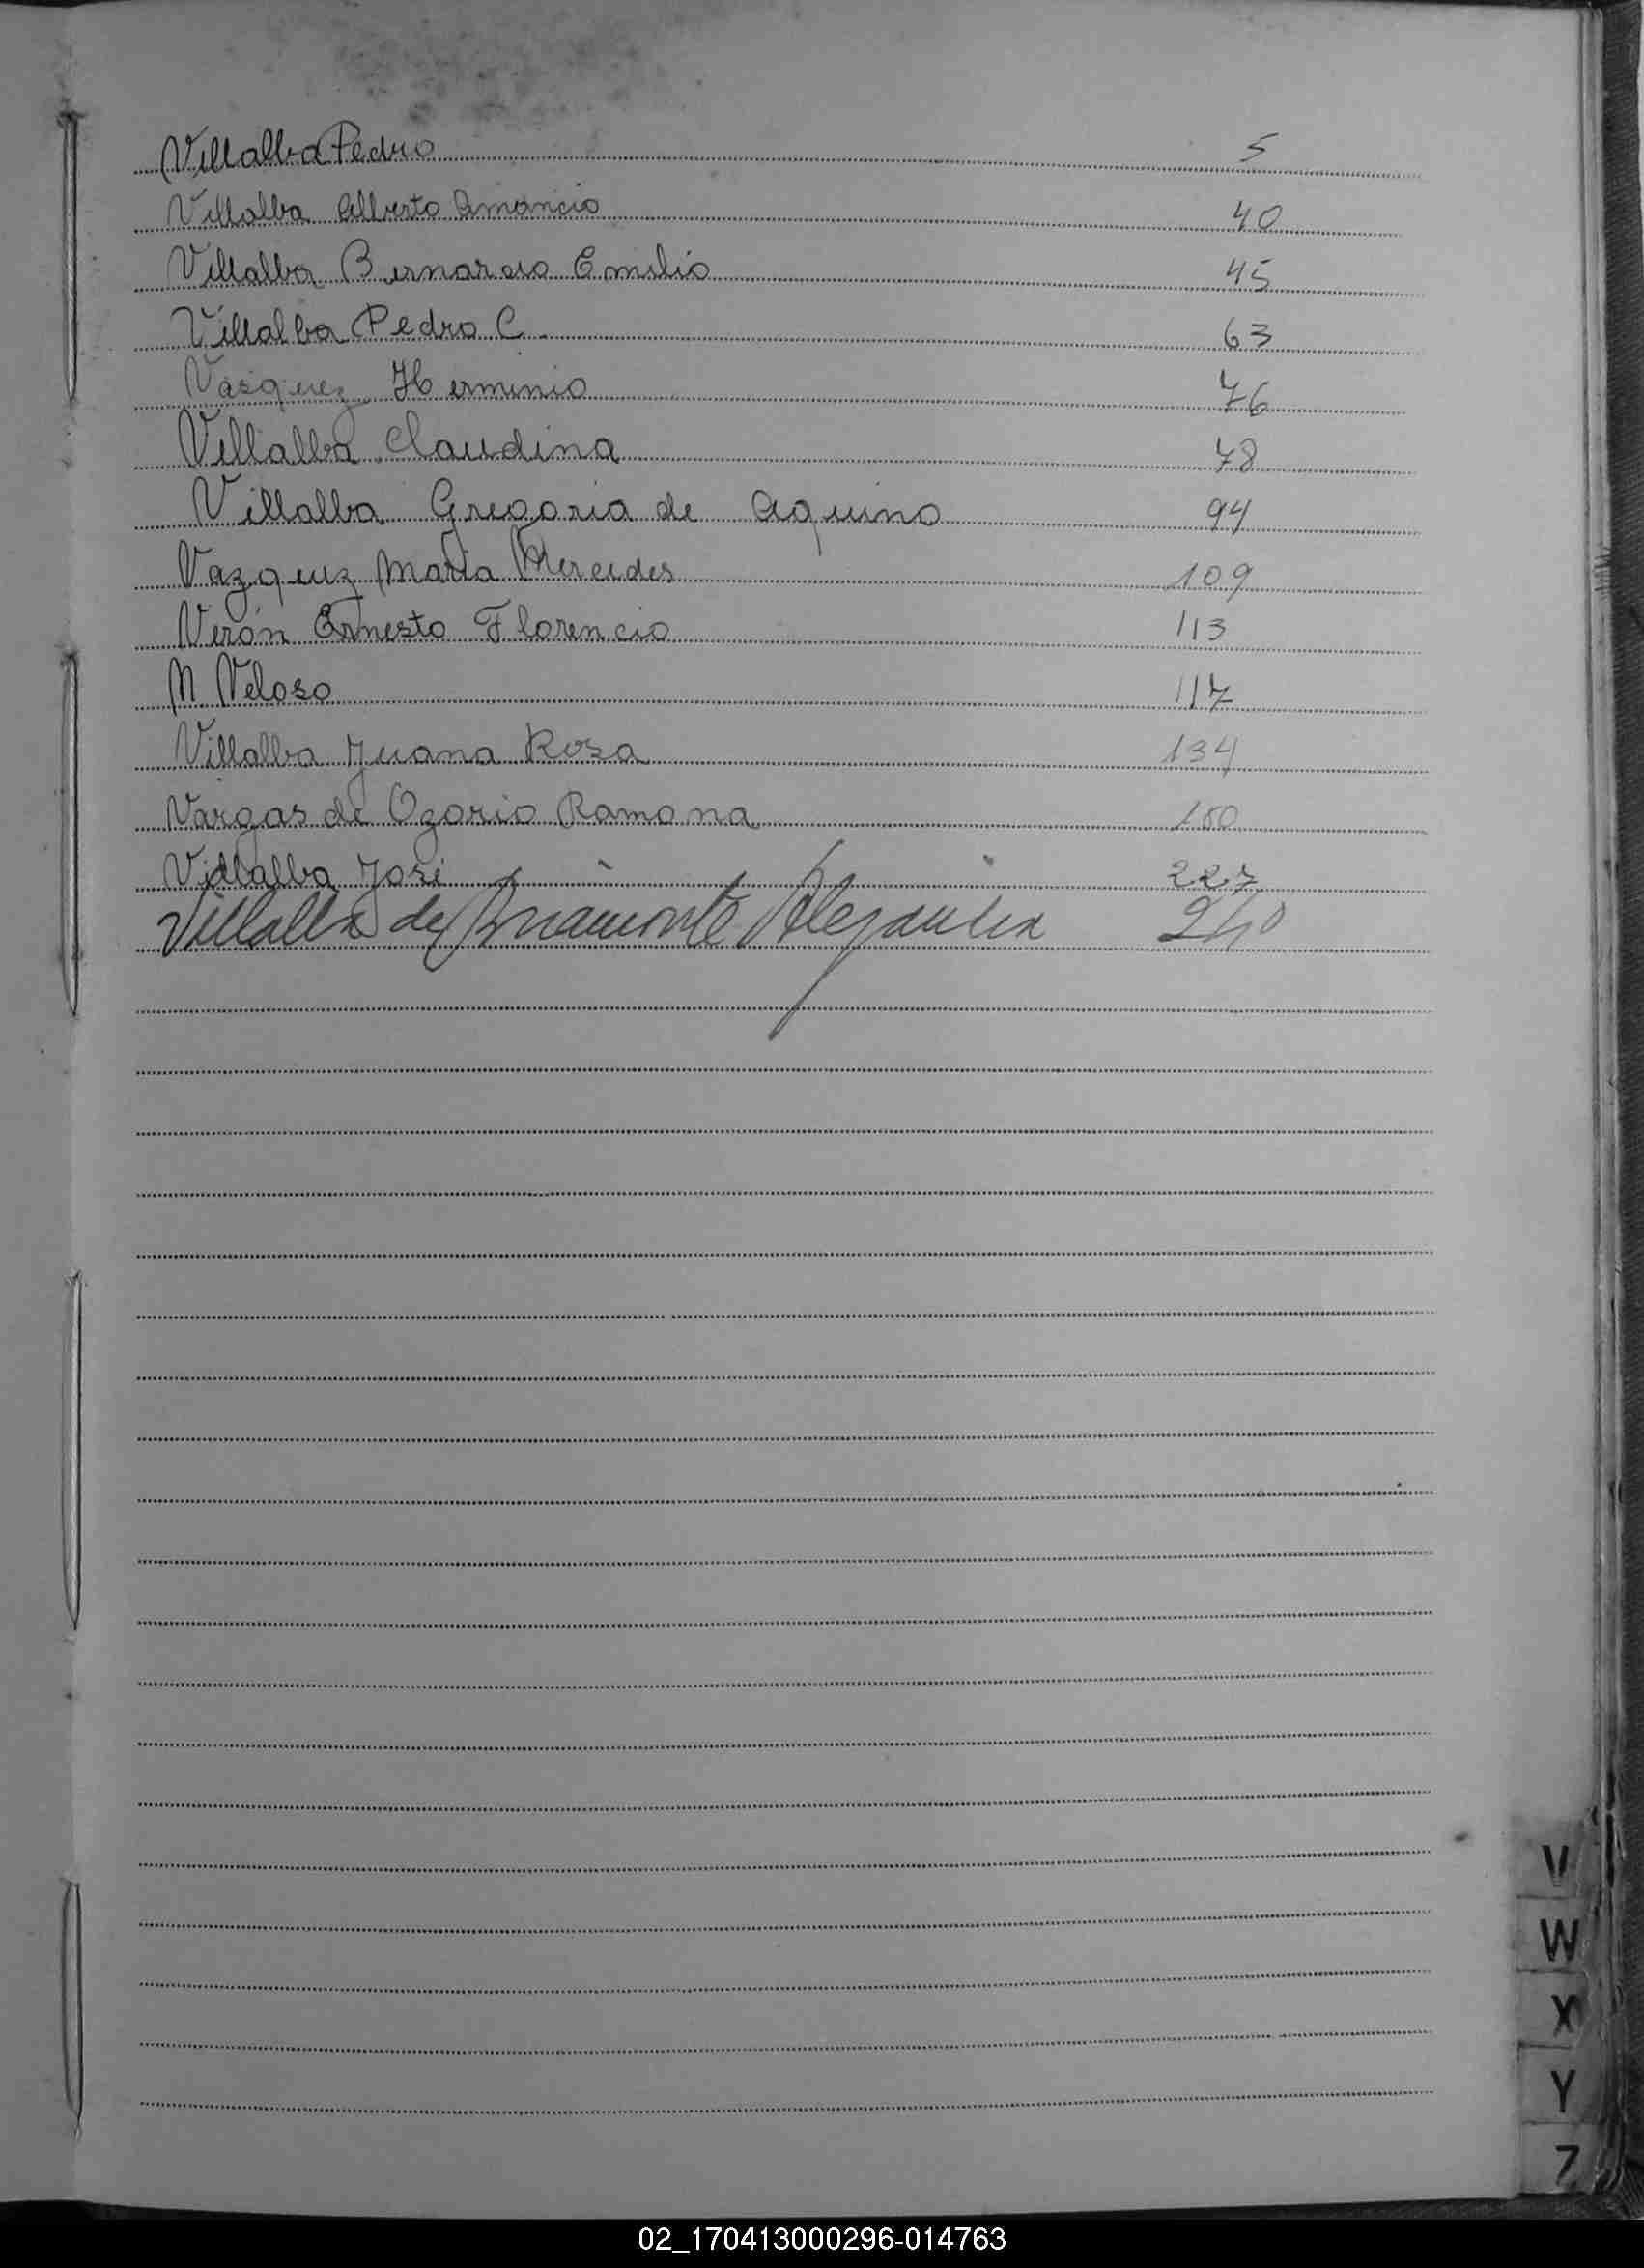 Villalba Pedro 5
Villalba Alberto Amancio 40
Villalba Bernardo Emilio 45
Villalba Pedro C. 63
Vásquez Herminio 76
Villalba Claudina 78
Villalba Gregoria de Aquino 94
Vazquez María Mercedes 109
Verón Ernesto Florencio 113
M Veloso 117
Villalba Juana Rosa 134
Vargas de Ozorio Ramona 150
Villalba José 227
Villalba de Alejandra 240
V
W
X
Y
Z
02_170413000296-014763